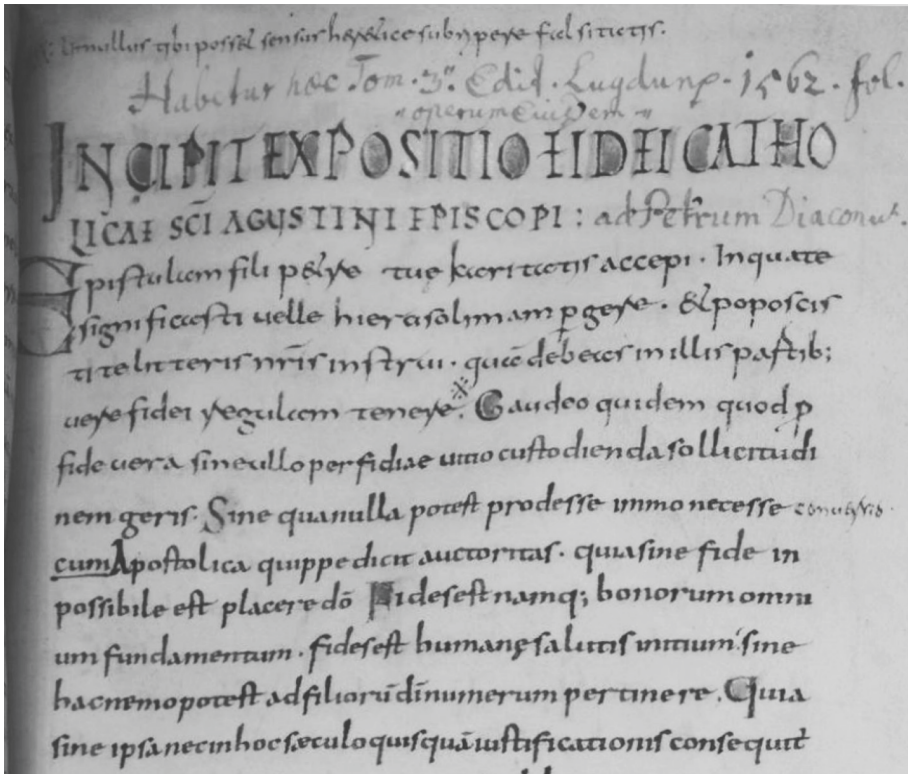 nullus tibi possit sensus heretice subripere falsitatis.
Habetur hæc Tom. 3.us Edit. Lugdunẽ. 1562. fol.
operum eiusdem
INCIPIT EXPOSITIO FIDEI CATHO
LICAE SCI AGUSTINI EPISCOPI : ad Petrum Diaconum.
Epistulam fili petre tue karitatis accepi. In qua te
significasti uelle hierasolimam pgere. Et poposcis
ti te litteris nris instrui. quid debeas in illis partib;
uere fidei regulam tenere. Gaudeo quidem quod p
fide uera sine ullo perfidiae uitio custodienda sollicitudi
nem geris. Sine qua nulla potest prodesse immo necesse
cum Apostolica quippe dicit auctoritas. quia sine fide in
possibile est placere dō Fides est namq; bonorum omni
um fundamentum. fides est humanę salutis initium. sine
hac nemo potest ad filiorū dī numerum pertinere. Quia
sine ipsa nec in hoc sæculo quisquā iustificationis consequit̄